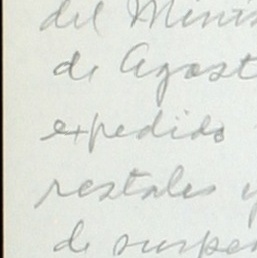 del Minis
de Agost
expedido
restales y
de suspen